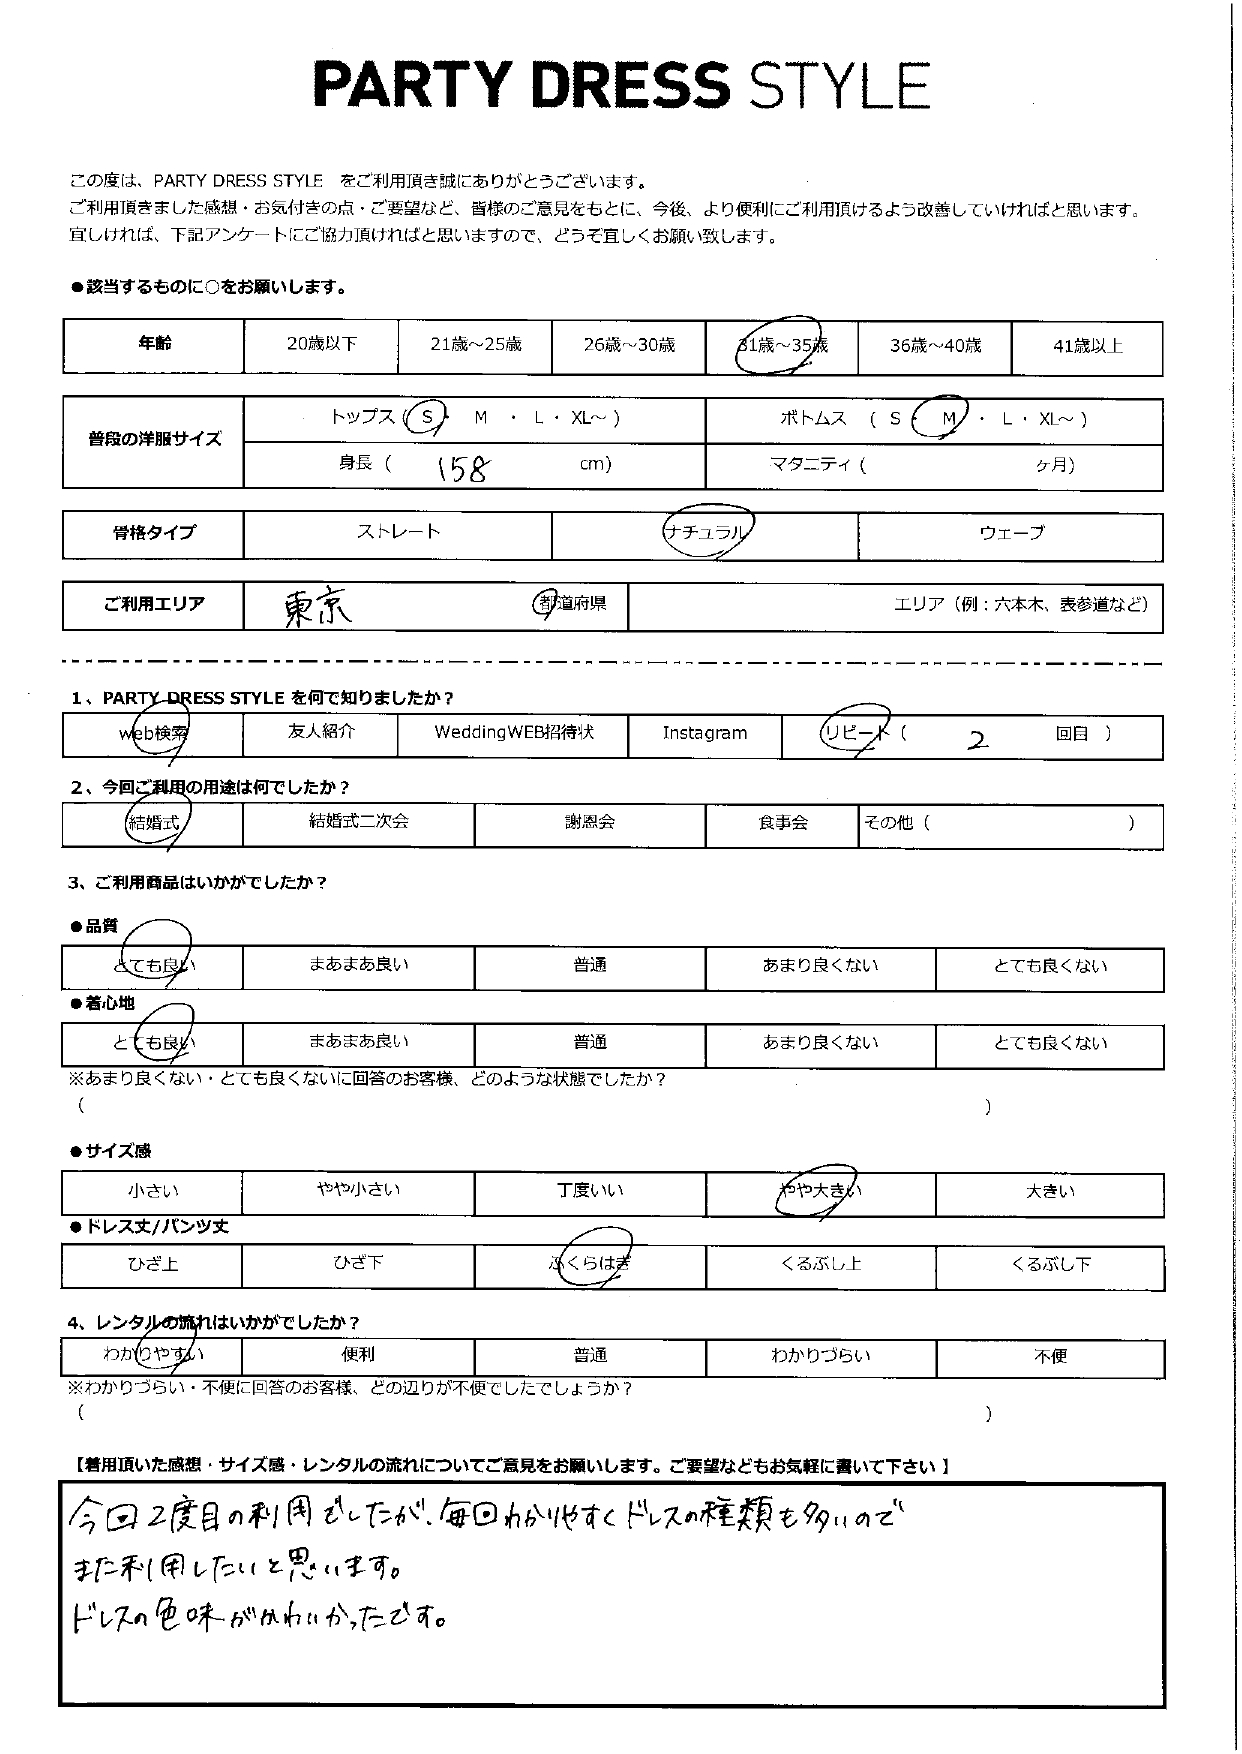 PARTY DRESS STYLE
この度は、PARTY DRESS STYLE をご利用頂き誠にありがとうございます。
ご利用頂きました感想・お気付きの点・ご要望など、皆様のご意見をもとに、今後、より便利にご利用頂けるよう改善していければと思います。
宜しければ、下記アンケートにご協力頂ければと思いますので、どうぞ宜しくお願い致します。
●該当するものに○をお願いします。
年齢 20歳以下 21歳～25歳 26歳～30歳 31歳～35歳 36歳～40歳 41歳以上
普段の洋服サイズ
トップス ( S ・ M ・ L ・ XL～ ) ボトムス ( S ・ M ・ L ・ XL～ )
身長 ( 158 cm) マタニティ ( ヶ月)
骨格タイプ ストレート ナチュラル ウェーブ
ご利用エリア 東京 都道府県 エリア（例：六本木、表参道など）
1、PARTY DRESS STYLE を何で知りましたか？
web検索 友人紹介 WeddingWEB招待状 Instagram リピート ( 2 回目 )
2、今回ご利用の用途は何でしたか？
結婚式 結婚式二次会 謝恩会 食事会 その他 ( )
3、ご利用商品はいかがでしたか？
●品質
とても良い まあまあ良い 普通 あまり良くない とても良くない
●着心地
とても良い まあまあ良い 普通 あまり良くない とても良くない
※あまり良くない・とても良くないに回答のお客様、どのような状態でしたか？
( )
●サイズ感
小さい やや小さい 丁度いい やや大きい 大きい
●ドレス丈/パンツ丈
ひざ上 ひざ下 ふくらはぎ くるぶし上 くるぶし下
4、レンタルの流れはいかがでしたか？
わかりやすい 便利 普通 わかりづらい 不便
※わかりづらい・不便に回答のお客様、どの辺りが不便でしたでしょうか？
( )
【着用頂いた感想・サイズ感・レンタルの流れについてご意見をお願いします。ご要望などもお気軽に書いて下さい】
今回2度目の利用でしたが、毎回わかりやすくドレスの種類も多いので
また利用したいと思います。
ドレスの色味がかわいかったです。